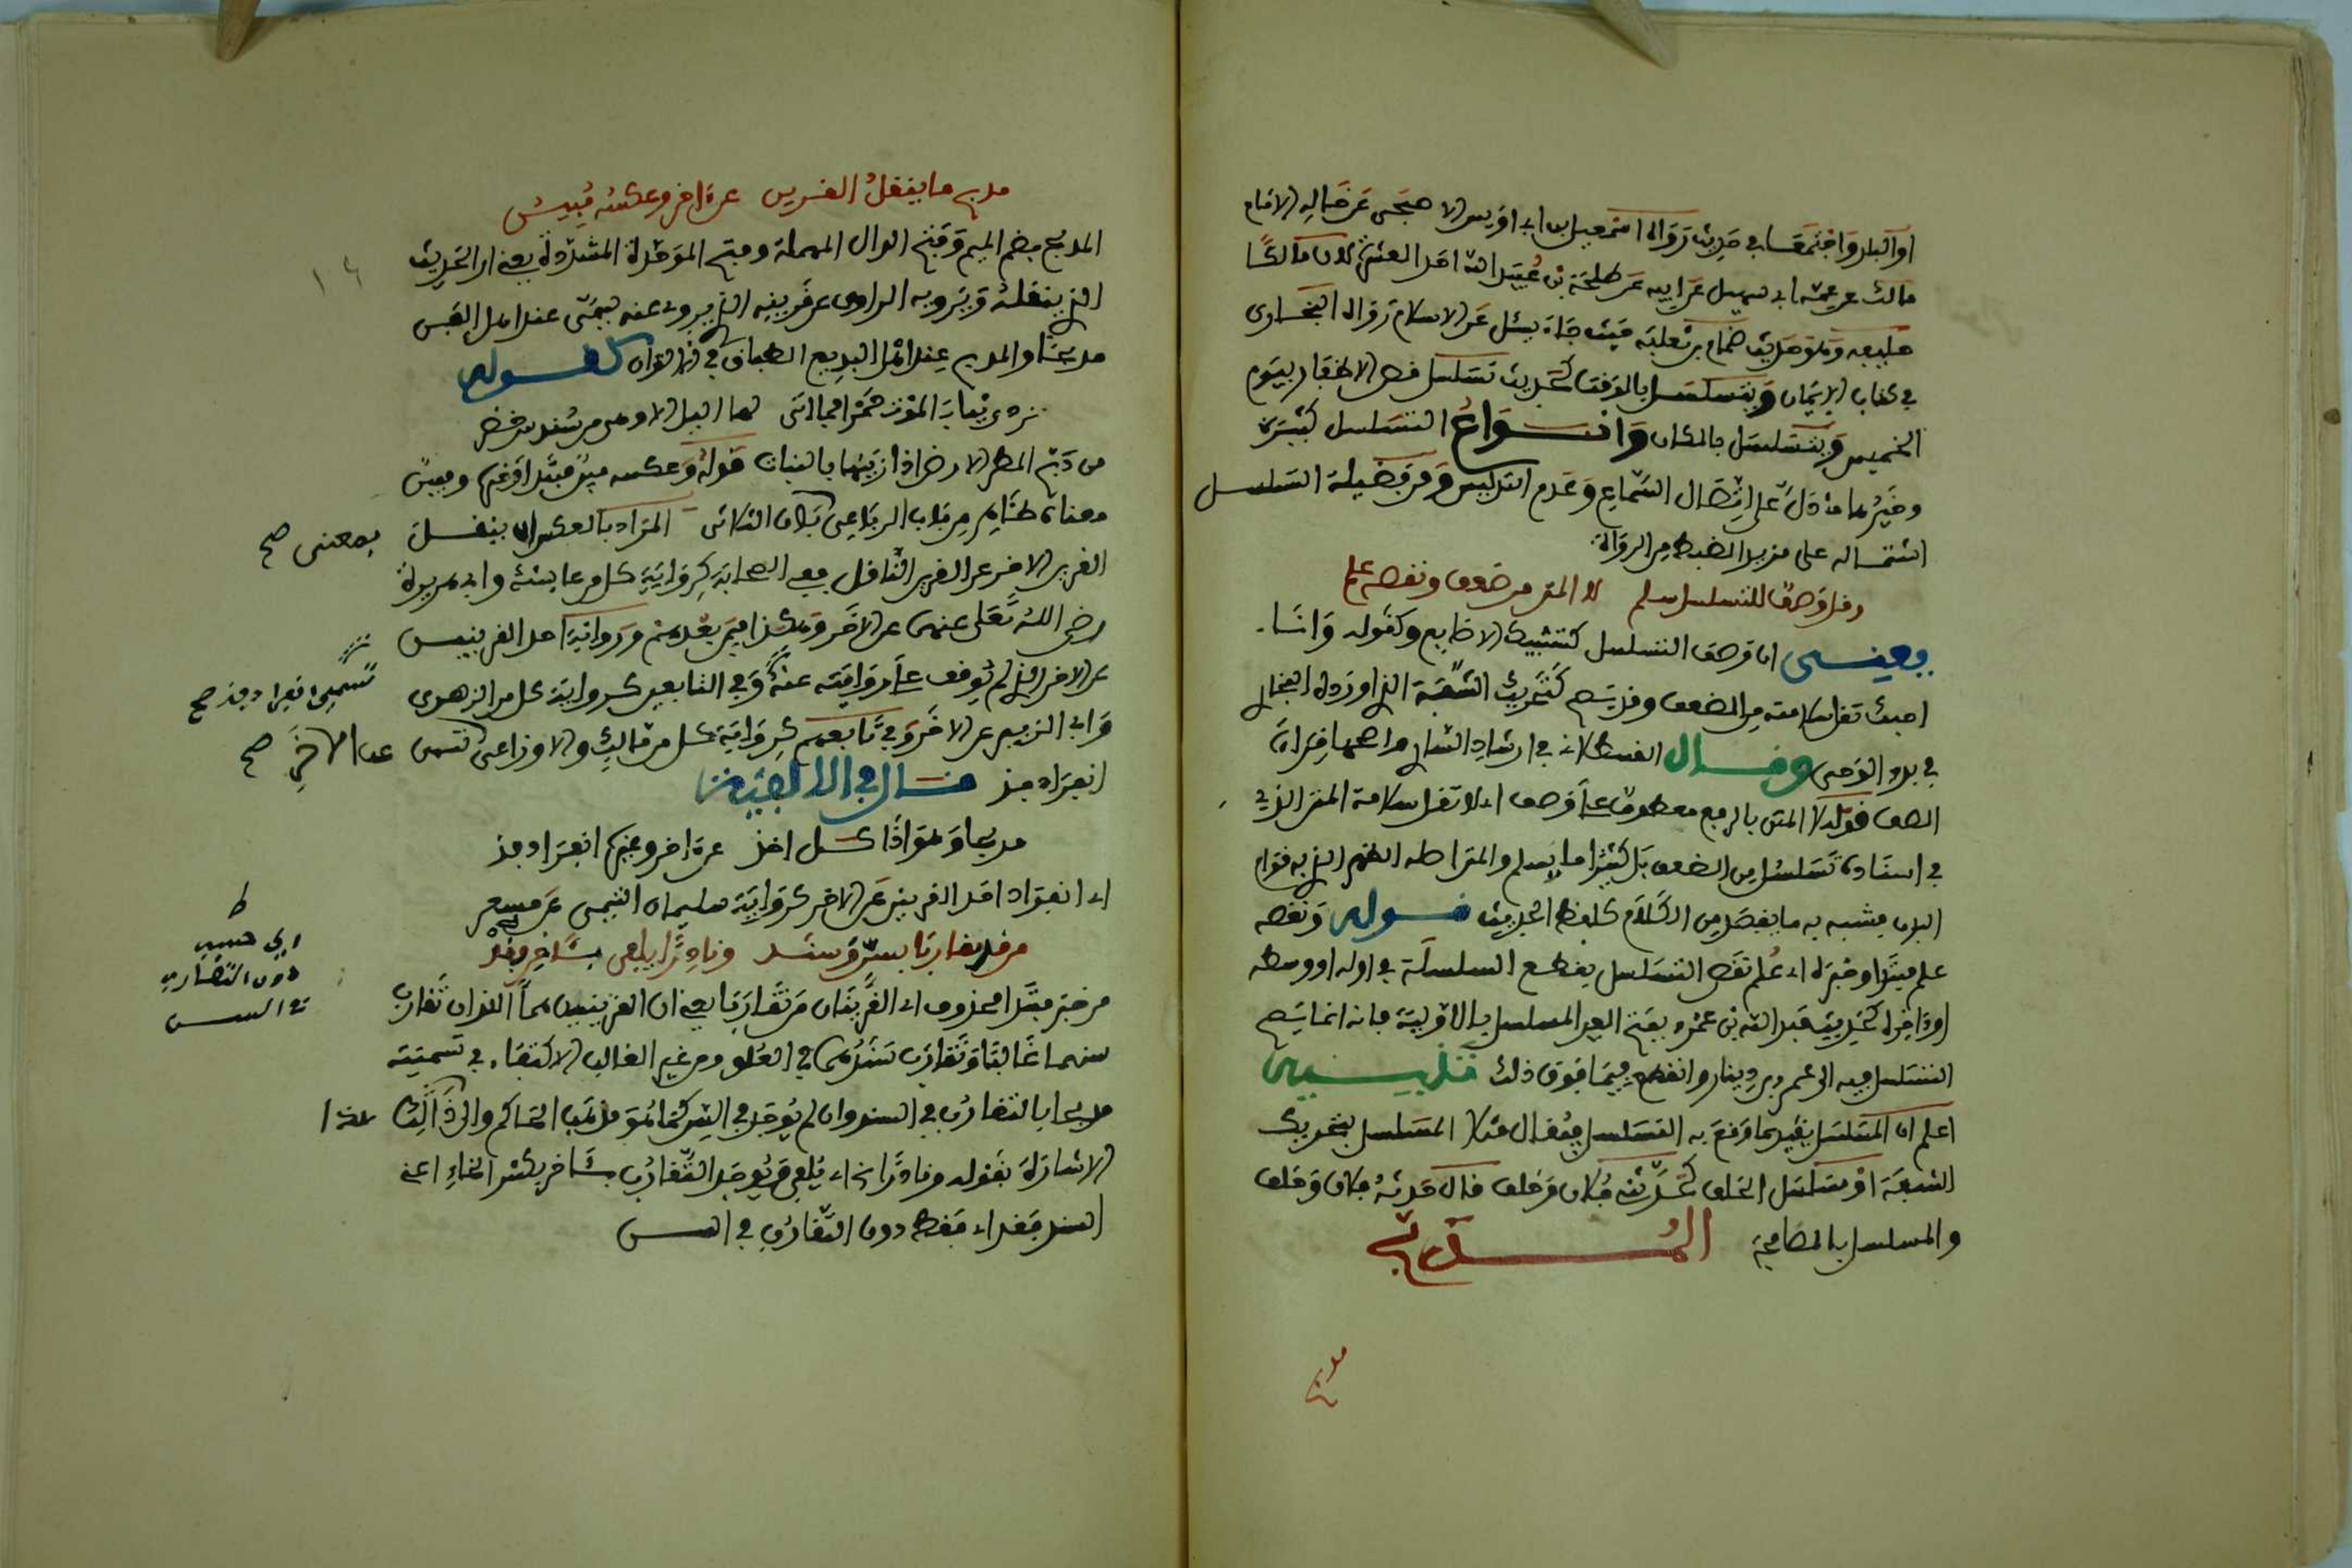 او البلد واجتمعا في حديث رواه اسمعيل بن ابي اويس الاصبحي عن خاله الامام
مالك عن عمه ابي سهيل عن ابيه عن طلحة بن عبيد الله احد العشرة لان مالكا
حليفه وهو حديث ضمام بن ثعلبة حيث جاء يسئل عن الاسلام رواه البخاري
في كتاب الايمان ويتسلسل بالوقت كحديث تسلسل قص الاظفار بيوم
الخميس ويتسلسل بالمكان وانواع التسلسل كثيرة
وخيرها ما دل على اتصال السماع وعدم التدليس ومن فضيلة التسلسل
اشتماله على مزيد الضبط من الرواة
وقل وصف التسلسل سلم لا المتن من ضعف ونقصه علم
يعني ان وصف التسلسل كتشبيك الاصابع وكقوله وانا
احبك تقل سلامته من الضعف وقد يسلم كتحريك الشفة الذي اورده البخاري
في بدء الوحي وقال القسطلاني في ارشاد الساري
الصف قوله لا المتن بالرفع معطوف على وصف اي لا تقل سلامة المتن الذي
في اسناده تسلسل من الضعف بل كثيرا ما يسلم والمتن اصله الظهر الذي به قوام
البدن فشبه به ما يقصد من الكلام كلفظ الحديث قوله ونقصه
علم مبتدا وخبره اي علم نقص التسلسل بقطع السلسلة في اوله او وسطه
او ءاخره كحديث عبد الله بن عمرو بفتح العين المسلسل بالاولية فانه انما يتم
التسلسل فيه الى عمرو بن دينار وانقطع فيما فوق ذلك تنبيه
اعلم ان المسلسل يقيد بما وقع به التسلسل فيقال مثلا المسلسل بتحريك
الشفة او مسلسل الحلف كحدثنيه فلان وحلف قال حدثه فلان وحلف
والمسلسل بالمصافحة المدبج
مدبج
مدبج ما ينقل القرين عن ءاخر وعكسه مبين
المدبج بضم الميم وفتح الدال المهملة وفتح الموحدة المشددة يعني ان الحديث
الذي ينقله ويرويه الراوي عن قرينه الذي يروي عنه يسمى عند اهل الفن
مدبجا والمدبج عند اهل البديع الطباق في الالوان كقوله
تردى ثياب الموت حمرا فما اتى لها الليل الا وهي من سندس خضر
من دبج المطر الارض اذا زينها بالنبات قوله وعكسه مبين مبتدا وخبر ومبين
معناه ظاهر من بان الرباعي كبان الثلاثي المراد بالعكس ان ينقل
بمعنى صح
القرين الاخر عن القرين الناقل ففي الصحابة كرواية كل من عائشة وابي هريرة
رضي الله تعلى عنهما عن الاخر وهكذا فيمن بعدهم ورواية احد القرينين
عن الاخر الذي لم يوقف على روايته عنه وفي التابعين كرواية كل من الزهري
تسمى انفراد فذ صح
وابي الزبير عن الاخر وفي تابعهم كرواية كل من مالك والاوزاعي عن الاخر صح
انفراد فذ قال في الالفية
مدبجا وهو اذا كل اخذ عن ءاخر وغيره انفراد فذ
اي انفراد احد القرينين عن الاخر كرواية سليمان التيمي عن مسعر
من قد تقاربا بسن وسند ونادرا يلفى بـءاخر فقد
من خبر مبتدا محذوف اي القرينان من تقاربا يعني ان القرينين هما اللذان تقارب
سنهما غالبا وتقارب سندهما في العلو ومن غير الغالب الاكتفاء في تسميته
مدبجا بالتقارب في السند وان لم يوجد في السن كما هو مذهب الحاكم والى ذالك هذا
الاشارة بقوله ونادرا اي يلفى ويوجد التقارب بـءاخر بكسر الخاء اعني
السند فقد اي فقط دون التقارب في السن
ط
اي حسب
دون التقارب
في السن